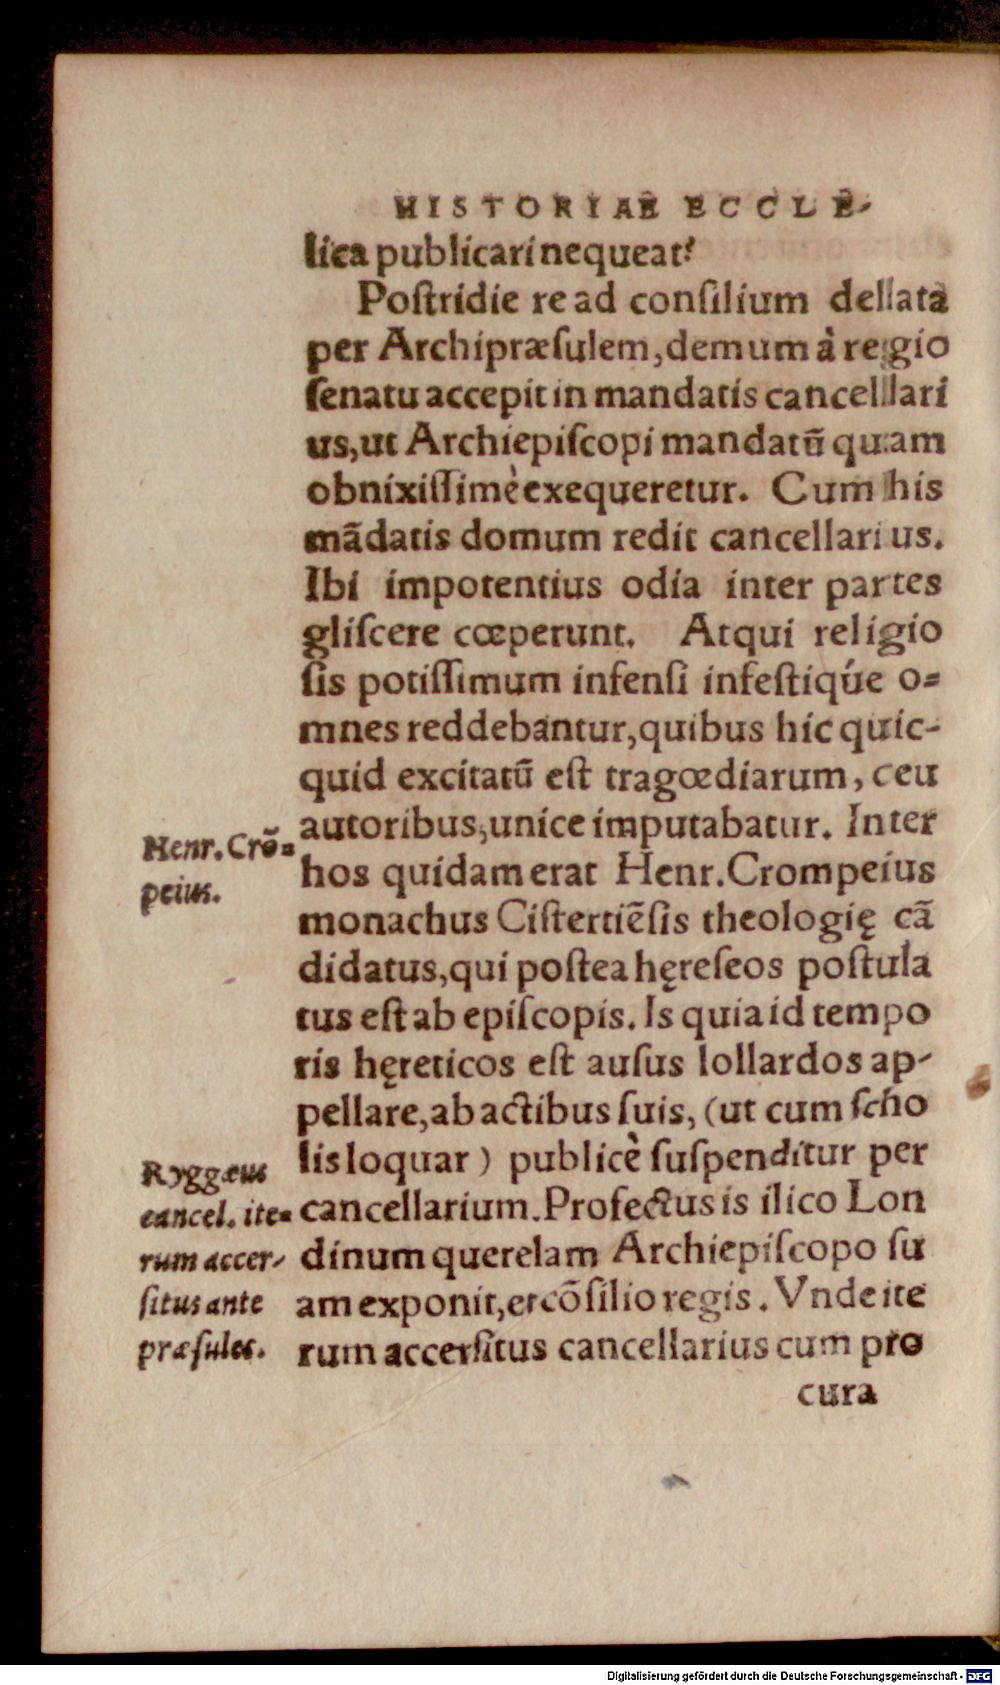 HISTORIAE ECCLE-
lica publicari nequeat?
Postridie re ad consilium dellata
per Archipræsulem, demum à regio
senatu accepit in mandatis cancellari
us, ut Archiepiscopi mandatũ quam
obnixissimè exequeretur. Cum his
mãdatis domum redit cancellarius.
Ibi impotentius odia inter partes
gliscere cœperunt. Atqui religio
sis potissimum infensi infestiq́ue o=
mnes reddebantur, quibus hic quic-
quid excitatũ est tragœdiarum, ceu
autoribus, unice imputabatur. Inter
Henr. Crõ=
peius.
hos quidam erat Henr. Crompeius
monachus Cistertiẽsis theologię cã
didatus, qui postea hęreseos postula
tus est ab episcopis. Is quia id tempo
ris hęreticos est ausus lollardos ap-
pellare, ab actibus suis, (ut cum scho
lis loquar) publicè suspenditur per
Ryggæus
cancel. ite=
rum accer-
situs ante
præsules.
cancellarium. Profectus is ilico Lon
dinum querelam Archiepiscopo su
am exponit, et cõsilio regis. Vnde ite
rum accersitus cancellarius cum pro
cura
Digitalisierung gefördert durch die Deutsche Forschungsgemeinschaft - DFG